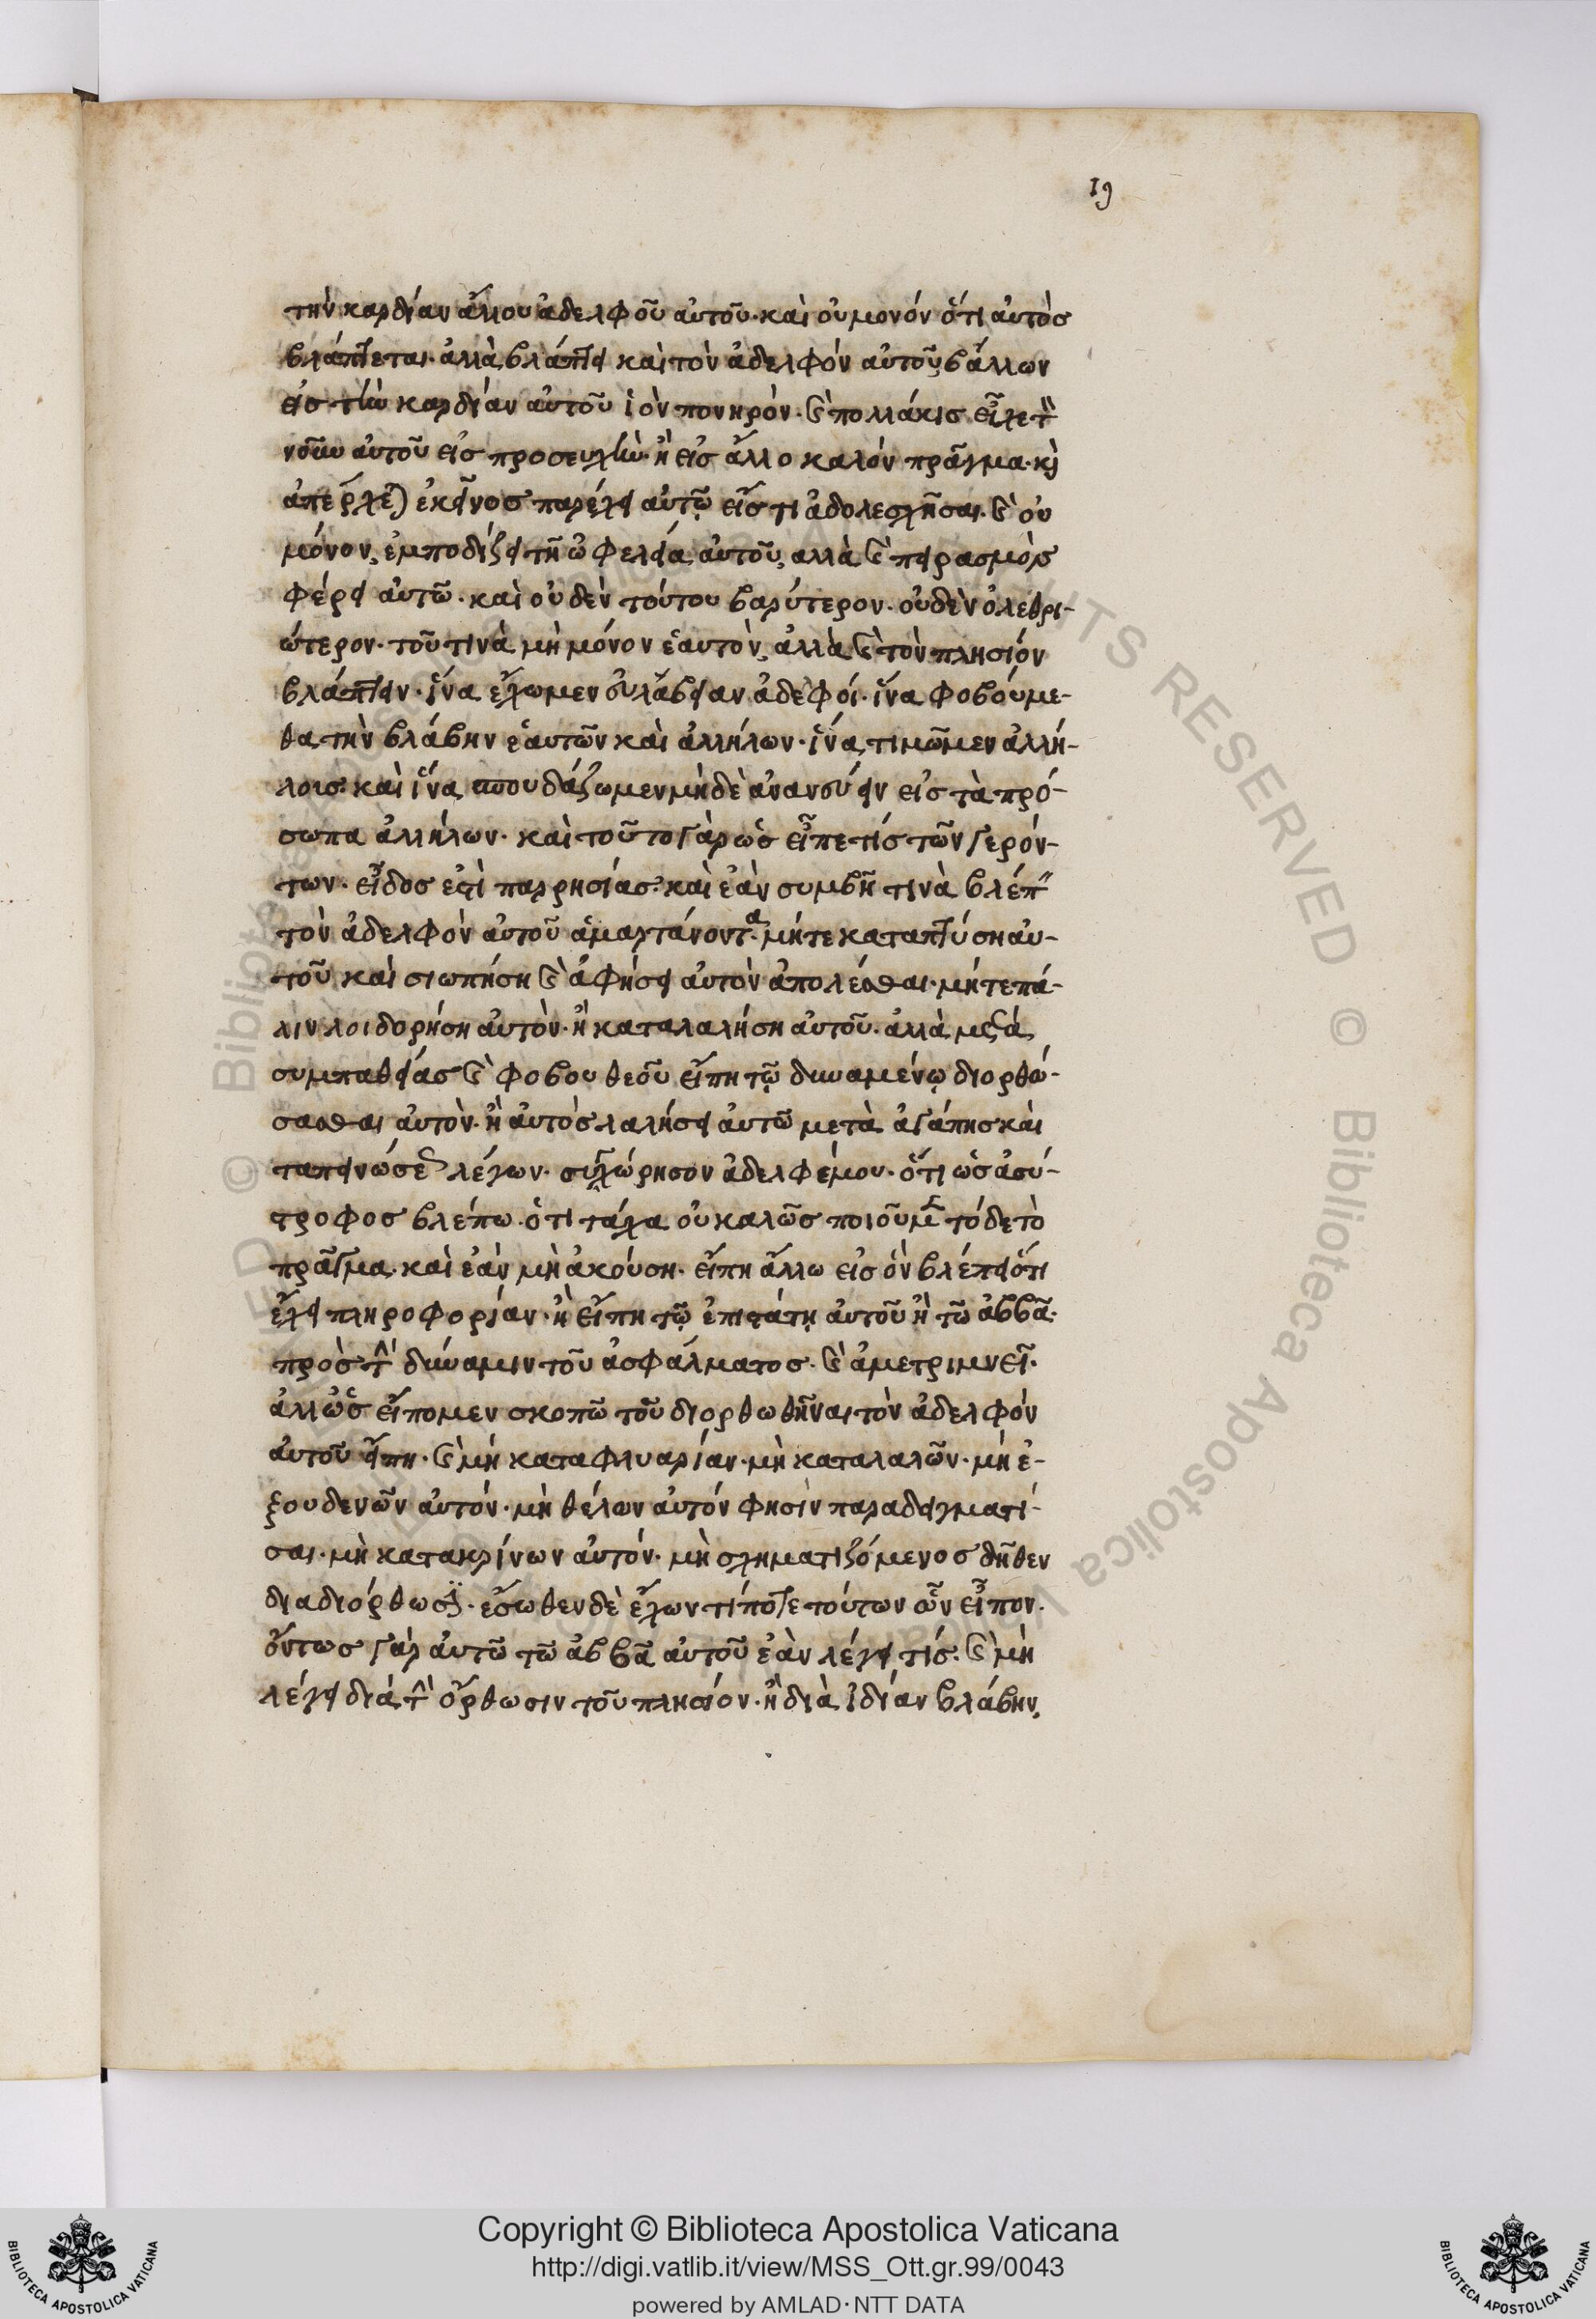 19
τὴν καρδίαν ἄλλου ἀδελφοῦ αὐτοῦ· καὶ οὐ μονόν ὅτι αὐτὸσ
βλάπτεται· ἀλλὰ βλάπτει καὶ τὸν ἀδελφόν αὐτοῦ, βάλλων
εἰσ τὴν καρδίαν αὐτοῦ ἰὸν πονηρόν· καὶ πολλάκισ εἶχε τὸν
νοῦν αὐτοῦ εἰσ προσευχὴν· ἢ εἰσ ἄλλο καλόν πρᾶγμα· καὶ
ἀπέρχεται ἐκεῖνοσ παρέχει αὐτῷ εἴσ τι ἀδολεσχῆσαι· καὶ οὐ
μόνον, ἐμποδίζει τῆ ὠφελεία αὐτοῦ, αλλὰ καὶ πειρασμὸν
φέρει αὐτῶ· καὶ οὐδὲν τούτου βαρύτερον· οὐδὲν ὀλεθρι-
ώτερον· τοῦ τινὰ μὴ μόνον ἑαυτὸν, ἀλλὰ καὶ τὸν πλησιόν
βλάπτειν· ἵνα ἔχωμεν εὐλάβειαν ἀδεφοί· ἵνα φοβούμε-
θα τὴν βλάβην ἑαυτῶν καὶ ἀλλήλων· ἵνα τιμῶμεν ἀλλή-
λοισ· καὶ ἵνα σπουδάζωμεν μὴδὲ ἀνανεύειν εἰσ τὰ πρό-
σωπα ἀλλήλων· καὶ τοῦτο γὰρ ὡσ εἶπε τίσ τῶν γερόν-
των· εἶδοσ ἐστὶ παρρησίασ· καὶ ἐὰν συμβῆ τινὰ βλέπειν
τὸν ἀδελφὸν αὐτοῦ ἁμαρτάνοντα· μήτε καταπτύση αὐ-
τοῦ καὶ σιωπήση καὶ ἀφήσει αὐτὸν ἀπολέσθαι· μήτε πά-
λιν λοιδορήση αὐτὸν· ἢ καταλαλήση αὐτοῦ· ἀλλὰ μετὰ
συμπαθείασ καὶ φοβου θεοῦ εἴπη τῷ δυναμένῳ διορθώ-
σασθαι αὐτὸν· ἢ αὐτὸσ λαλήσει αὐτῶ μετὰ ἀγάπησ καὶ
ταπεινώσεωσ λέγων· συχώρησον ἀδελφέ μου· ὅτι ὡσ ἀσύ-
τροφοσ βλέπω· ὁτι τάχα οὐ καλῶσ ποιοῦμεν τόδε τὸ
πρᾶγμα· καὶ ἐὰν μὴ ἀκούση· εἴπη ἄλλω εἰσ ὃν βλέπει ὅτι
ἔχει πληροφορίαν· ἢ εἴπη τῷ ἐπιστάτῃ αὐτοῦ ἢ τῶ ἀββᾶ·
πρὸσ τὴν δύναμιν τοῦ ἀσφάλματοσ· καὶ ἀμετριμνεῖ·
ἀλλ' ὡσ εἴπομεν σκοπῶ τοῦ διορθωθῆναι τὸν ἀδελφόν
αὐτοῦ εἴπη· καὶ μὴ καταφλυαρίαν· μὴ καταλαλῶν· μὴ ἐ-
ξουδενῶν αὐτόν· μὴ θέλων αὐτόν φησὶν παραδειγματί-
σαι· μὴ κατακρίνων αὐτόν· μὴ σχηματιζόμενοσ δῆθεν
διαδιόρθωσιν· ἔσωθεν δὲ ἔχων τίποτε τούτων ὧν εἶπον·
ὄντωσ γὰρ αὐτῶ τῶ ἀββᾶ αὐτοῦ ἐὰν λέγει τίσ· καὶ μὴ
λέγει διὰ τὴν ὄρθωσιν τοῦ πλησιόν· ἢ διὰ ἰδίαν βλάβην,
© Biblioteca Apostolica Vaticana
RIGHTS RESERVED
Copyright © Biblioteca Apostolica Vaticana
http://digi.vatlib.it/view/MSS_Ott.gr.99/0043
powered by AMLAD·NTT DATA
BIBLIOTECA APOSTOLICA VATICANA
BIBLIOTECA APOSTOLICA VATICANA